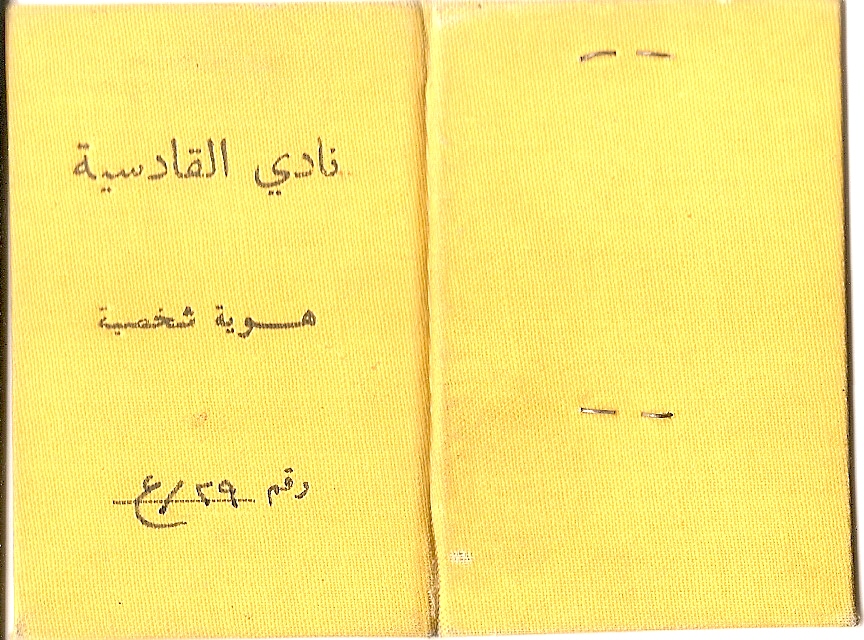 نادي القادسية
هـوية شخصية
رقم ٢٩/ع